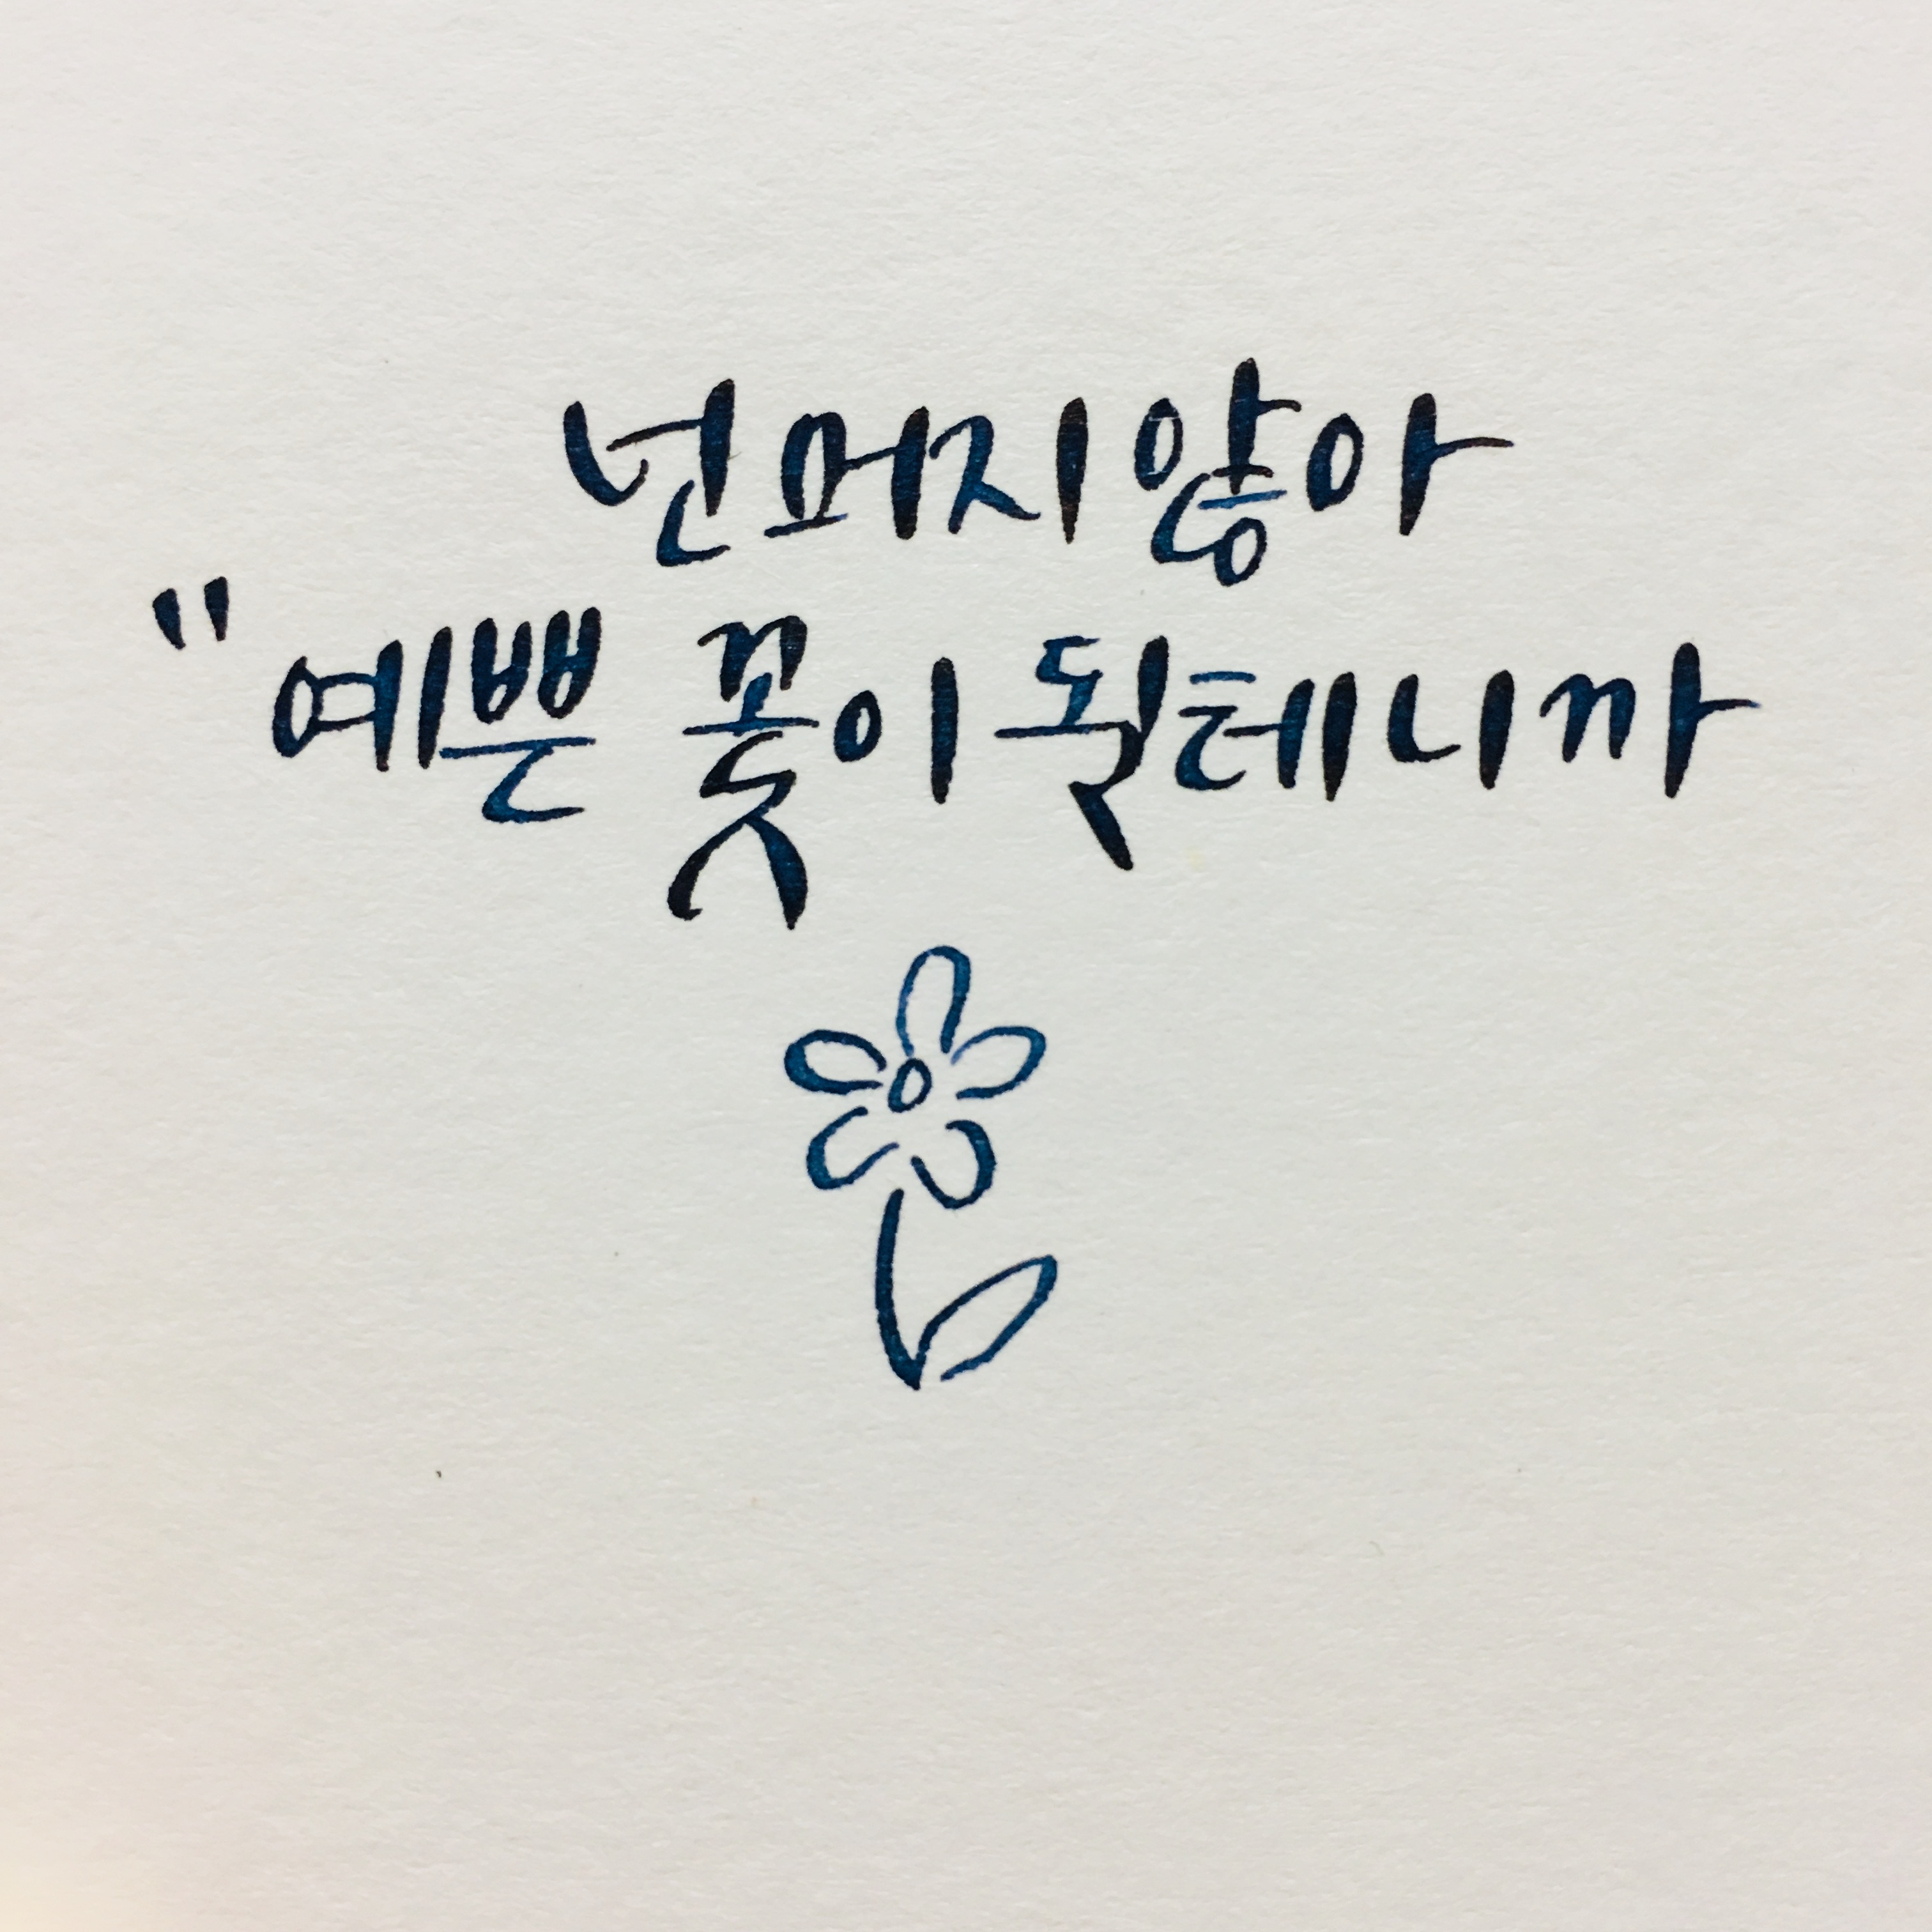 넌 머지않아
"예쁜 꽃이 될테니까